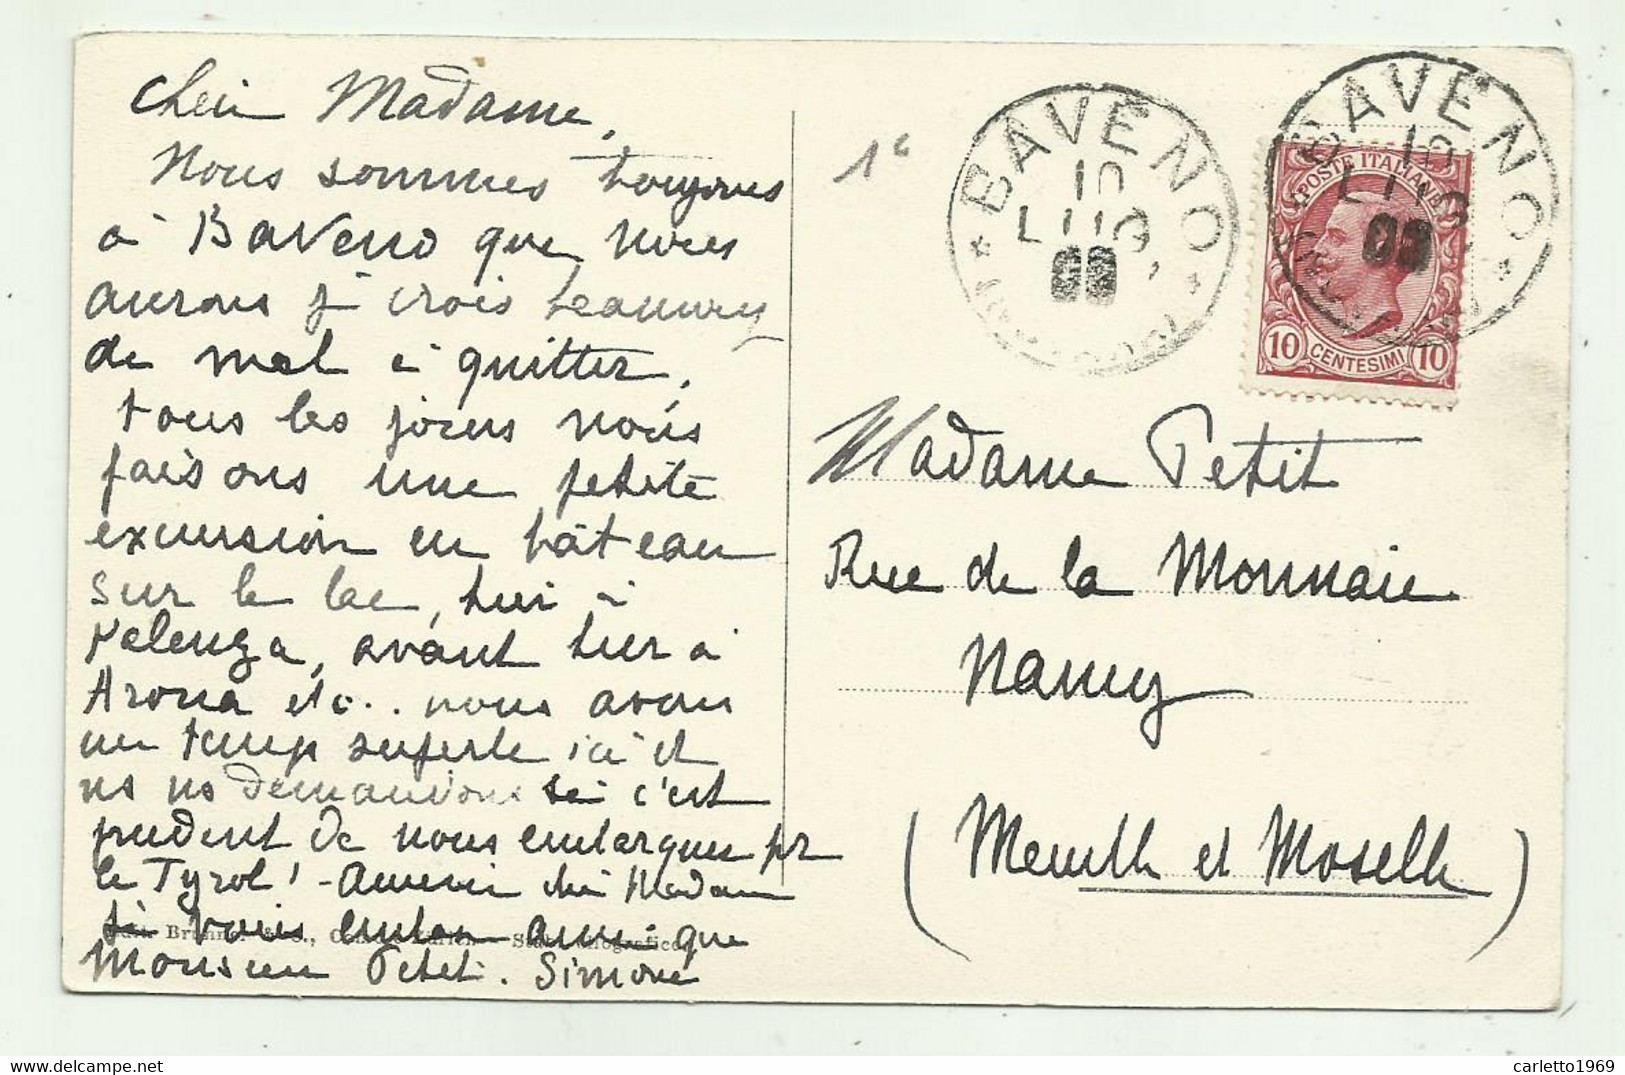 chère Madame,
Nous sommes toujours
à Baveno que nous
aurons je crois beaucoup
de mal à quitter,
tous les jours nous
faisons une petite
excursion en bâteau
sur le lac, hier à
Palenza, avant hier à
Arona etc.. nous avons
un temps superbe ici et
ns ns demandons si c'est
prudent de nous embarquer pr
le Tyrol! - Au revoir chère Madame
que
Monsieur Petit. Simone
1€
BAVENO
10
LUG.
09
BAVENO
10
LUG.
09
POSTE ITALIANE
10 CENTESIMI 10
Madame Petit
Rue de la Monnaie
Nancy
(Meurthe et Moselle)
carletto1969